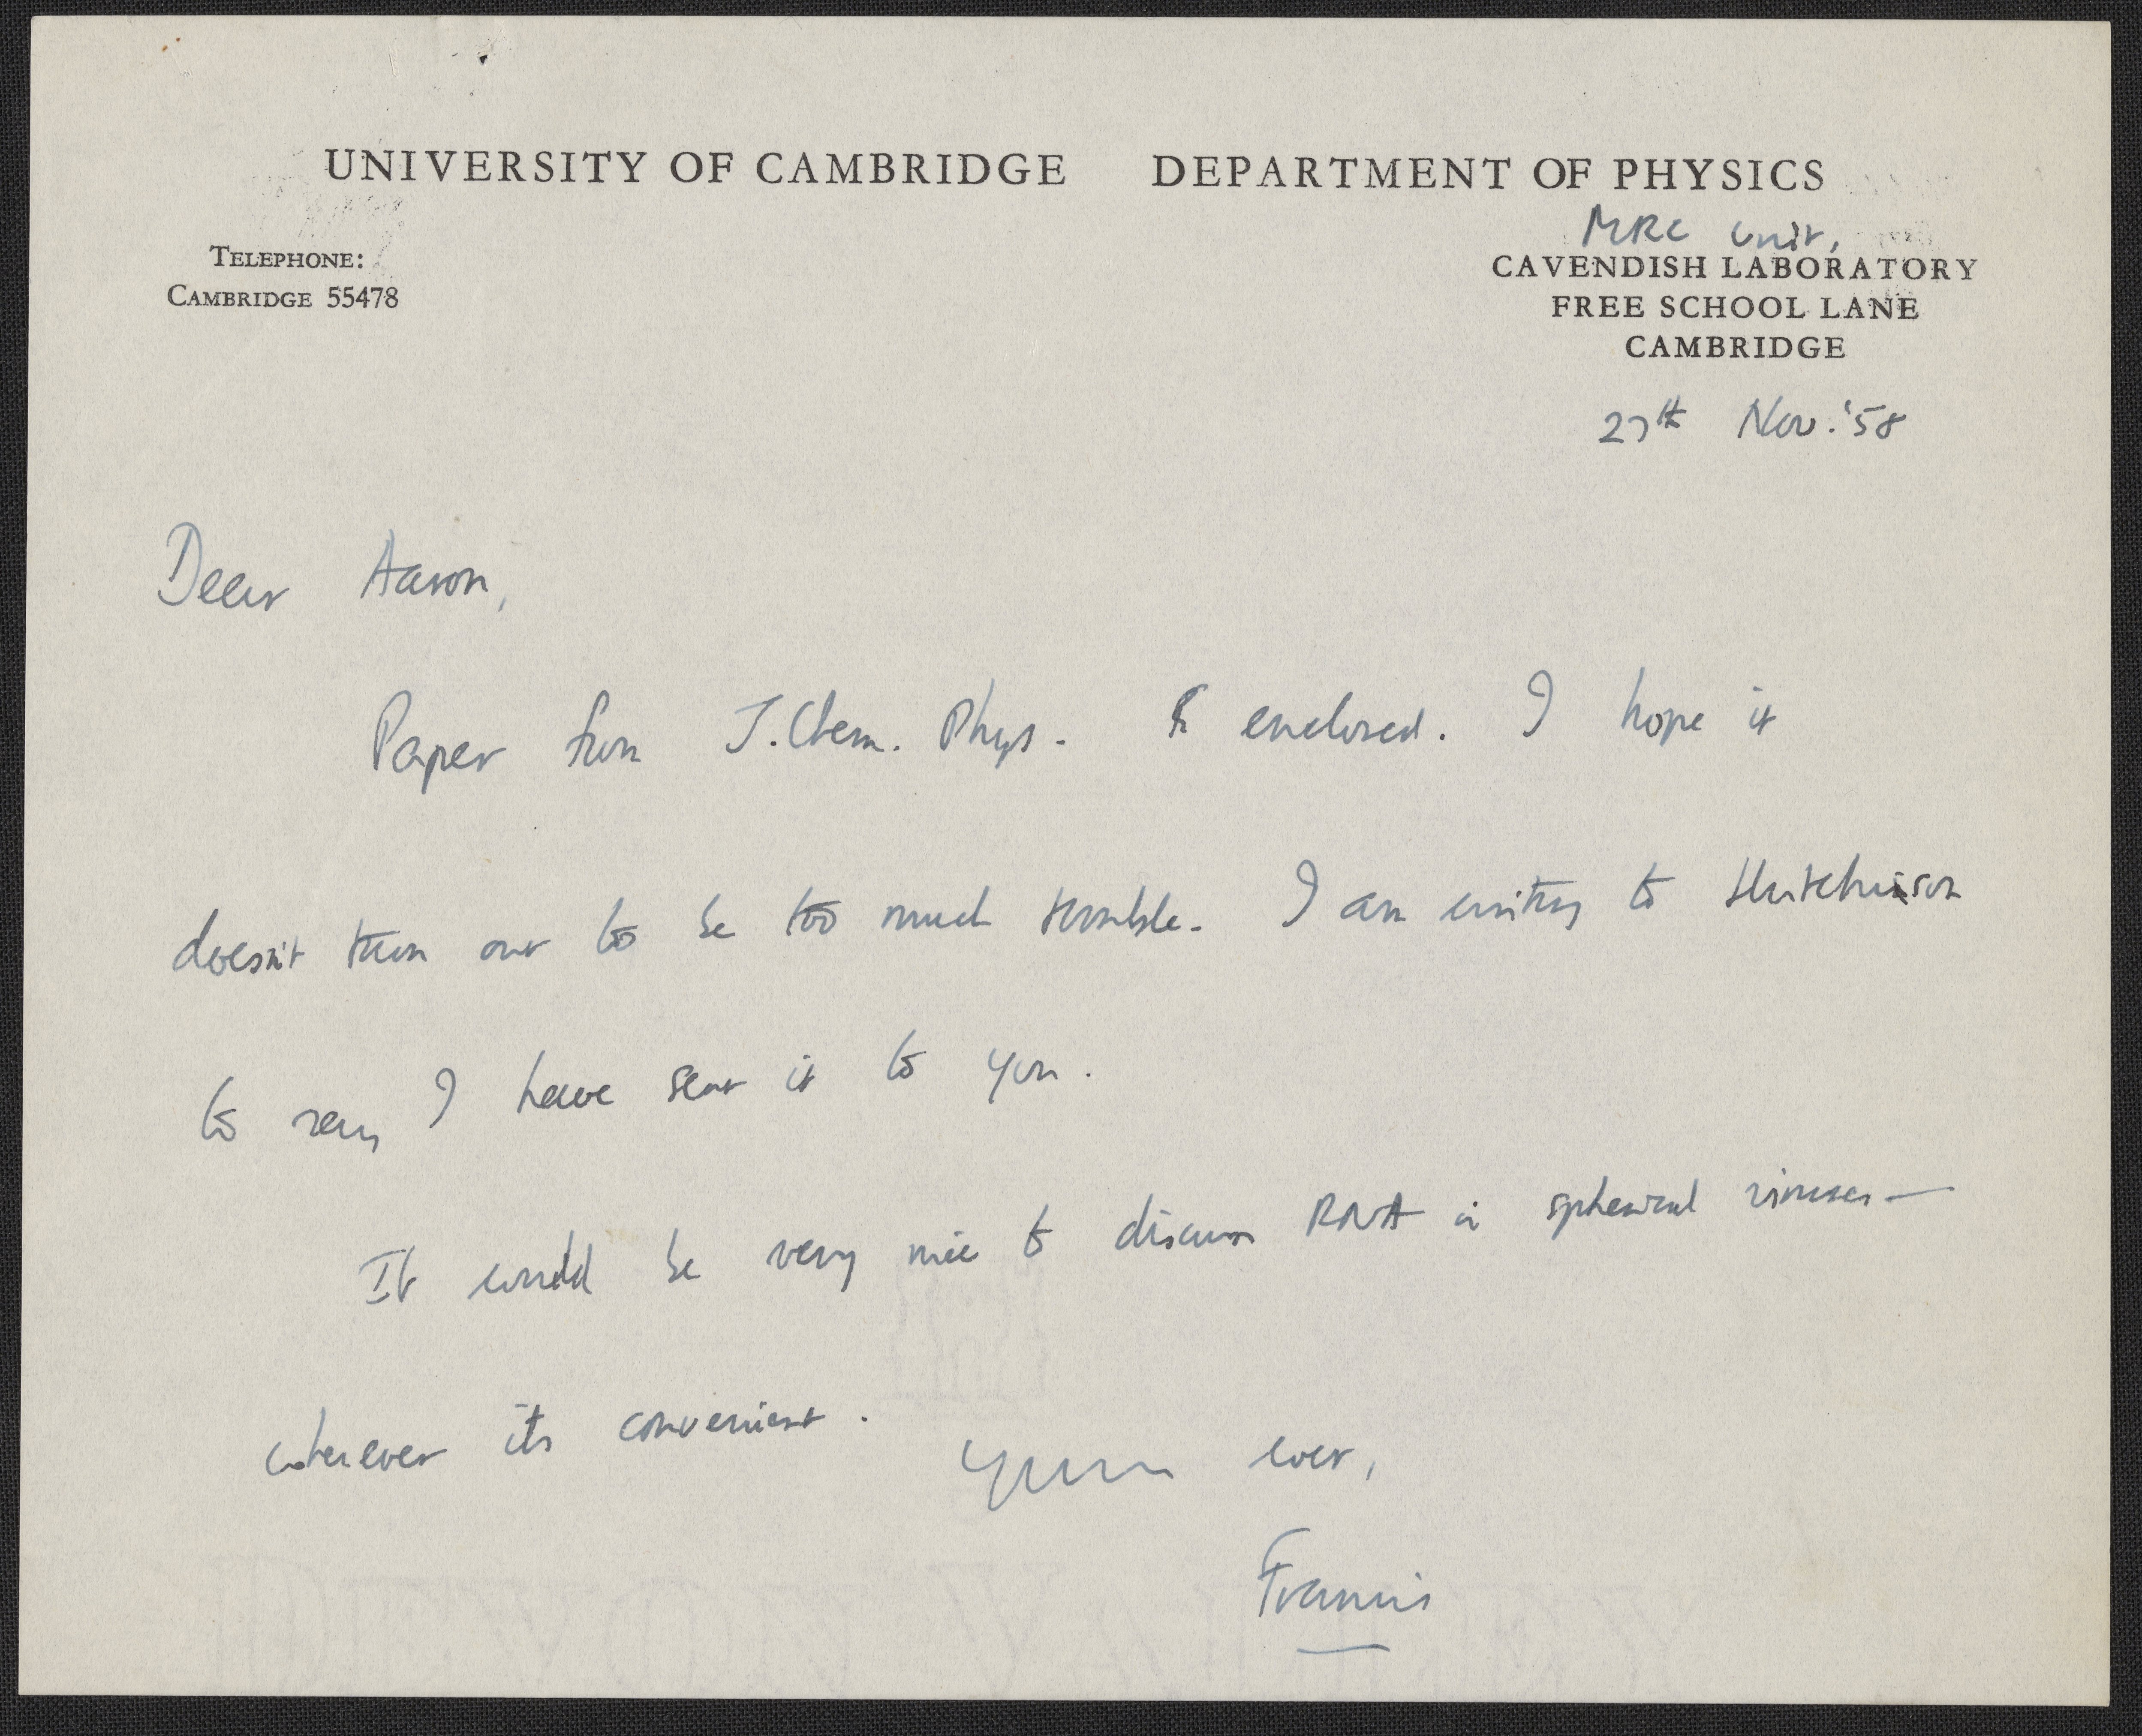 UNIVERSITY OF CAMBRIDGE DEPARTMENT OF PHYSICS
MRC Unit,
TELEPHONE:
CAMBRIDGE 55478
CAVENDISH LABORATORY
FREE SCHOOL LANE
CAMBRIDGE
27th Nov. '58
Dear Aaron,
Paper from J. Chem. Phys. is enclosed. I hope it
doesn't turn out to be too much trouble. I am writing to Hutchison
to say I have sent it to you.
It would be very nice to discuss RNA in spherical viruses—
wherever its convenient.
Yours ever,
Francis